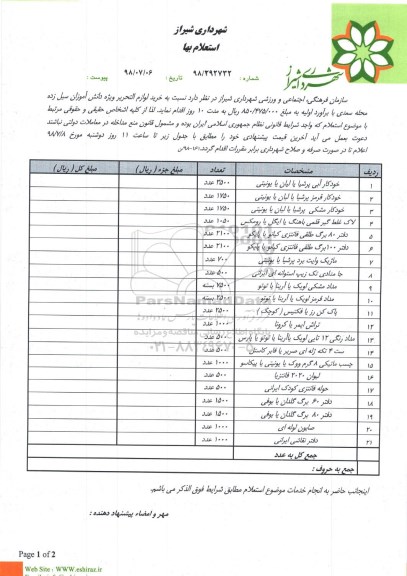 شهرداری شیراز
استعلام بها
شماره : ۹۸/۲۹۲۷۳۲ تاریخ : ۹۸/۰۷/۰۶ پیوست :
سازمان فرهنگی، اجتماعی و ورزشی شهرداری شیراز در نظر دارد نسبت به خرید لوازم التحریر ویژه دانش آموزان سیل زده
محله سعدی با برآورد اولیه به مبلغ ۸۵۰/۴۷۵/۰۰۰ ریال به مدت ۱۰ روز اقدام نمایند. لذا از کلیه اشخاص حقیقی و حقوقی مرتبط
با موضوع استعلام که واجد شرایط قانونی نظام جمهوری اسلامی ایران بوده و مشمول قانون منع مداخله در معاملات دولتی نباشند
دعوت بعمل می آید آخرین قیمت پیشنهادی خود را مطابق با جدول زیر تا ساعت ۱۱ روز دوشنبه مورخ ۹۸/۷/۸
اعلام تا در صورت صرفه و صلاح شهرداری برابر مقررات اقدام گردد.
ردیف مشخصات تعداد مبلغ جزء ( ریال ) مبلغ کل ( ریال )
۱ خودکار آبی پرشیا یا لیان یا یونیتی ۳۵۰۰ عدد
۲ خودکار قرمز پرشیا یا لیان یا یونیتی ۱۷۵۰ عدد
۳ خودکار مشکی پرشیا یا لیان یا یونیتی ۱۷۵۰ عدد
۴ لاک غلط گیر قلمی باهنگ یا ایگل یا روسکس ۱۰۵۰ عدد
۵ دفتر ۸۰ برگ طلقی فانتزی کیانو یا پاپکو ۲۱۰۰ عدد
۶ دفتر ۱۰۰ برگ طلقی فانتزی کیانو یا پاپکو ۲۱۰۰ عدد
۷ ماژیک وایت برد پرشیا یا یونیتی ۷۰۰ عدد
۸ جا مدادی تک زیپ استوانه ای ایرانی ۵۰۰ عدد
۹ مداد مشکی لوپک یا آریتا یا لوتو ۷۵۰ بسته
۱۰ مداد قرمز لوپک یا آریتا یا لوتو ۲۵۰ بسته
۱۱ پاک کن رز یا فکتیس ( کوچک ) ۲۵۰۰ عدد
۱۲ تراش ایمر یا کرونا ۱۰۰۰ عدد
۱۳ مداد رنگی ۱۲ تایی لوپک یاآریتا یا لوتو یا پارس ۵۰۰ عدد
۱۴ ست ۴ تکه ژله ای صریر یا فابر کاستل ۵۰۰ عدد
۱۵ چسب ماتیکی ۸ گرم ووک یا یونیتی یا پیکاسو ۱۰۰۰ عدد
۱۶ لیوان ۲۰۲۰ فانتزیا ۵۰۰ عدد
۱۷ حوله فانتزی کودک ایرانی ۵۰۰ عدد
۱۸ دفتر ۶۰ برگ گلدان یا یوفی ۱۵۰۰ عدد
۱۹ دفتر ۸۰ برگ گلدان یا یوفی ۱۵۰۰ عدد
۲۰ صابون لوله ای ۱۰۰۰ عدد
۲۱ دفتر نقاشی ایرانی ۱۰۰۰ عدد
جمع کل به عدد
جمع به حروف :
اینجانب حاضر به انجام خدمات موضوع استعلام مطابق شرایط فوق الذکر می باشم.
مهر و امضاء پیشنهاد دهنده :
Page 1 of 2
Web Site - www.eshiraz.ir